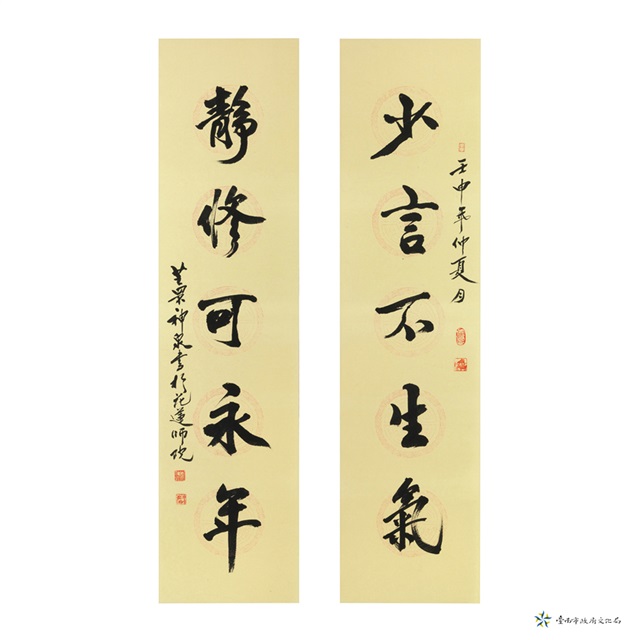 少言不生氣
壬申年仲夏月
靜修可永年
神泉書於花蓮師院
臺南市政府文化局